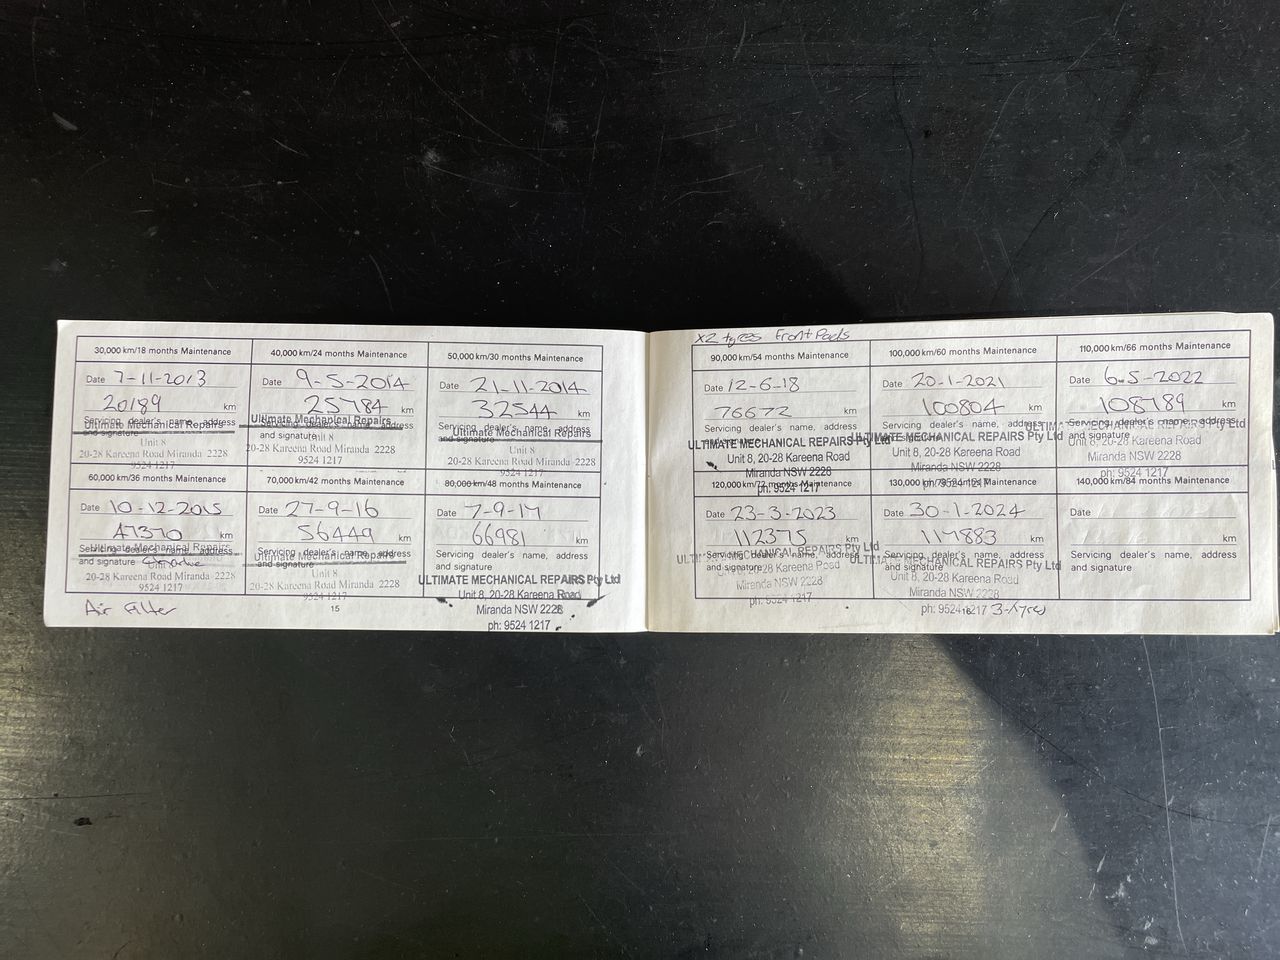 30,000 km/18 months Maintenance
Date 7-11-2013
20189 km
Servicing dealer's name, address
and signature
Ultimate Mechanical Repairs
Unit 8
20-28 Kareena Road Miranda 2228
9524 1217
40,000 km/24 months Maintenance
Date 9-5-2014
25784 km
Servicing dealer's name, address
and signature
Ultimate Mechanical Repairs
Unit 8
20-28 Kareena Road Miranda 2228
9524 1217
50,000 km/30 months Maintenance
Date 21-11-2014
32544 km
Servicing dealer's name, address
and signature
Ultimate Mechanical Repairs
Unit 8
20-28 Kareena Road Miranda 2228
9524 1217
60,000 km/36 months Maintenance
Date 10-12-2015
47370 km
Servicing dealer's name, address
and signature
Ultimate Mechanical Repairs
20-28 Kareena Road Miranda 2228
9524 1217
Air Filter
70,000 km/42 months Maintenance
Date 27-9-16
56449 km
Servicing dealer's name, address
and signature
Ultimate Mechanical Repairs
Unit 8
20-28 Kareena Road Miranda 2228
9524 1217
80,000 km/48 months Maintenance
Date 7-9-17
66981 km
Servicing dealer's name, address
and signature
ULTIMATE MECHANICAL REPAIRS Pty Ltd
Unit 8, 20-28 Kareena Road
Miranda NSW 2228
ph: 9524 1217
15
x2 tyres Front Pads
90,000 km/54 months Maintenance
Date 12-6-18
76672 km
Servicing dealer's name, address
and signature
ULTIMATE MECHANICAL REPAIRS Pty Ltd
Unit 8, 20-28 Kareena Road
Miranda NSW 2228
ph: 9524 1217
100,000 km/60 months Maintenance
Date 20-1-2021
100804 km
Servicing dealer's name, address
and signature
ULTIMATE MECHANICAL REPAIRS Pty Ltd
Unit 8, 20-28 Kareena Road
Miranda NSW 2228
ph: 9524 1217
110,000 km/66 months Maintenance
Date 6-5-2022
108789 km
Servicing dealer's name, address
and signature
ULTIMATE MECHANICAL REPAIRS Pty Ltd
Unit 8, 20-28 Kareena Road
Miranda NSW 2228
ph: 9524 1217
120,000 km/72 months Maintenance
Date 23-3-2023
112375 km
Servicing dealer's name, address
and signature
ULTIMATE MECHANICAL REPAIRS Pty Ltd
Unit 8, 20-28 Kareena Road
Miranda NSW 2228
ph: 9524 1217
130,000 km/78 months Maintenance
Date 30-1-2024
117883 km
Servicing dealer's name, address
and signature
ULTIMATE MECHANICAL REPAIRS Pty Ltd
Unit 8, 20-28 Kareena Road
Miranda NSW 2228
ph: 9524 1217
3-tyres
140,000 km/84 months Maintenance
Date
km
Servicing dealer's name, address
and signature
16